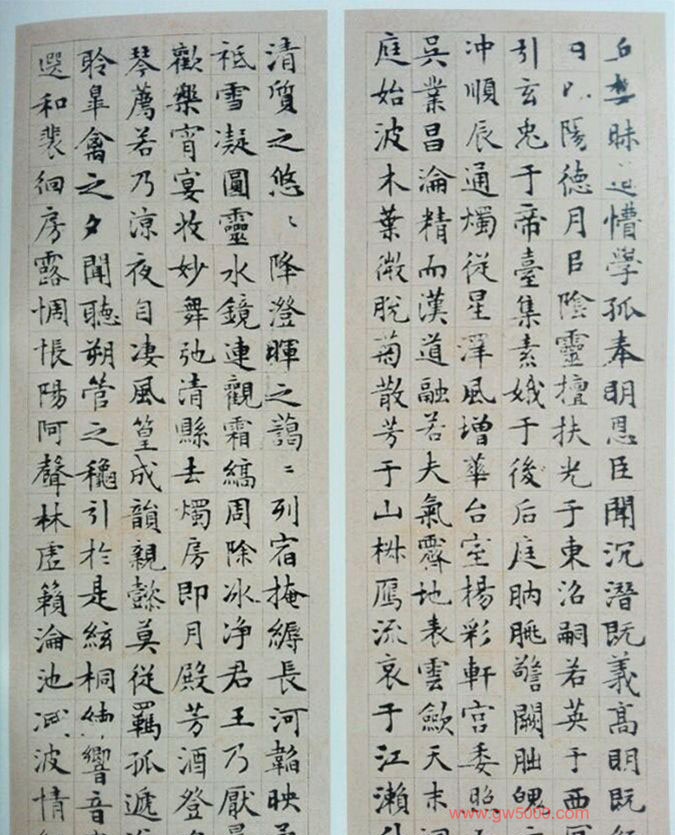 昧道懵學孤奉明恩臣聞沉潛既義高明既
日以陽德月㠯陰靈擅扶光于東沼嗣若英于西
引玄兔于帝臺集素娥于後后庭朒朓警闕朏魄
冲順辰通燭從星澤風增華台室楊彩軒宮委照
吳業昌淪精而漢道融若夫氣霽地表雲歛天末
庭始波木葉微脫菊散芳于山椒鴈流哀于江瀨
清質之悠〻降澄暉之藹〻列宿掩縟長河韜映
祗雪凝圓靈水鏡連觀霜縞周除冰净君王乃厭
歡樂宵宴收妙舞弛清縣去燭房即月殿芳酒登
琴薦若乃涼夜自凄風篁成韻親懿莫從羈孤遞
聆皐禽之夕聞聽朔管之穐引於是絃桐練響音
選和裴徊房露惆悵陽阿聲林虛籟淪池滅波情
www.gw5000.com